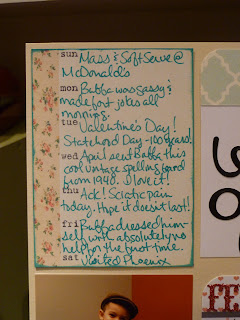 sun Mass & Soft Serve @
McDonald's
mon Bubba was sassy &
made fart jokes all
morning.
tue Valentine's Day!
Statehood Day - 100 years!
wed April sent Bubba this
cool vintage spelling card
from 1940. I love it!
thu Ack! Sciatic pain
today. Hope it doesn't last!
fri Bubba dressed him-
self with absolutely no
help for the first time.
sat Visited Phoenix
FE